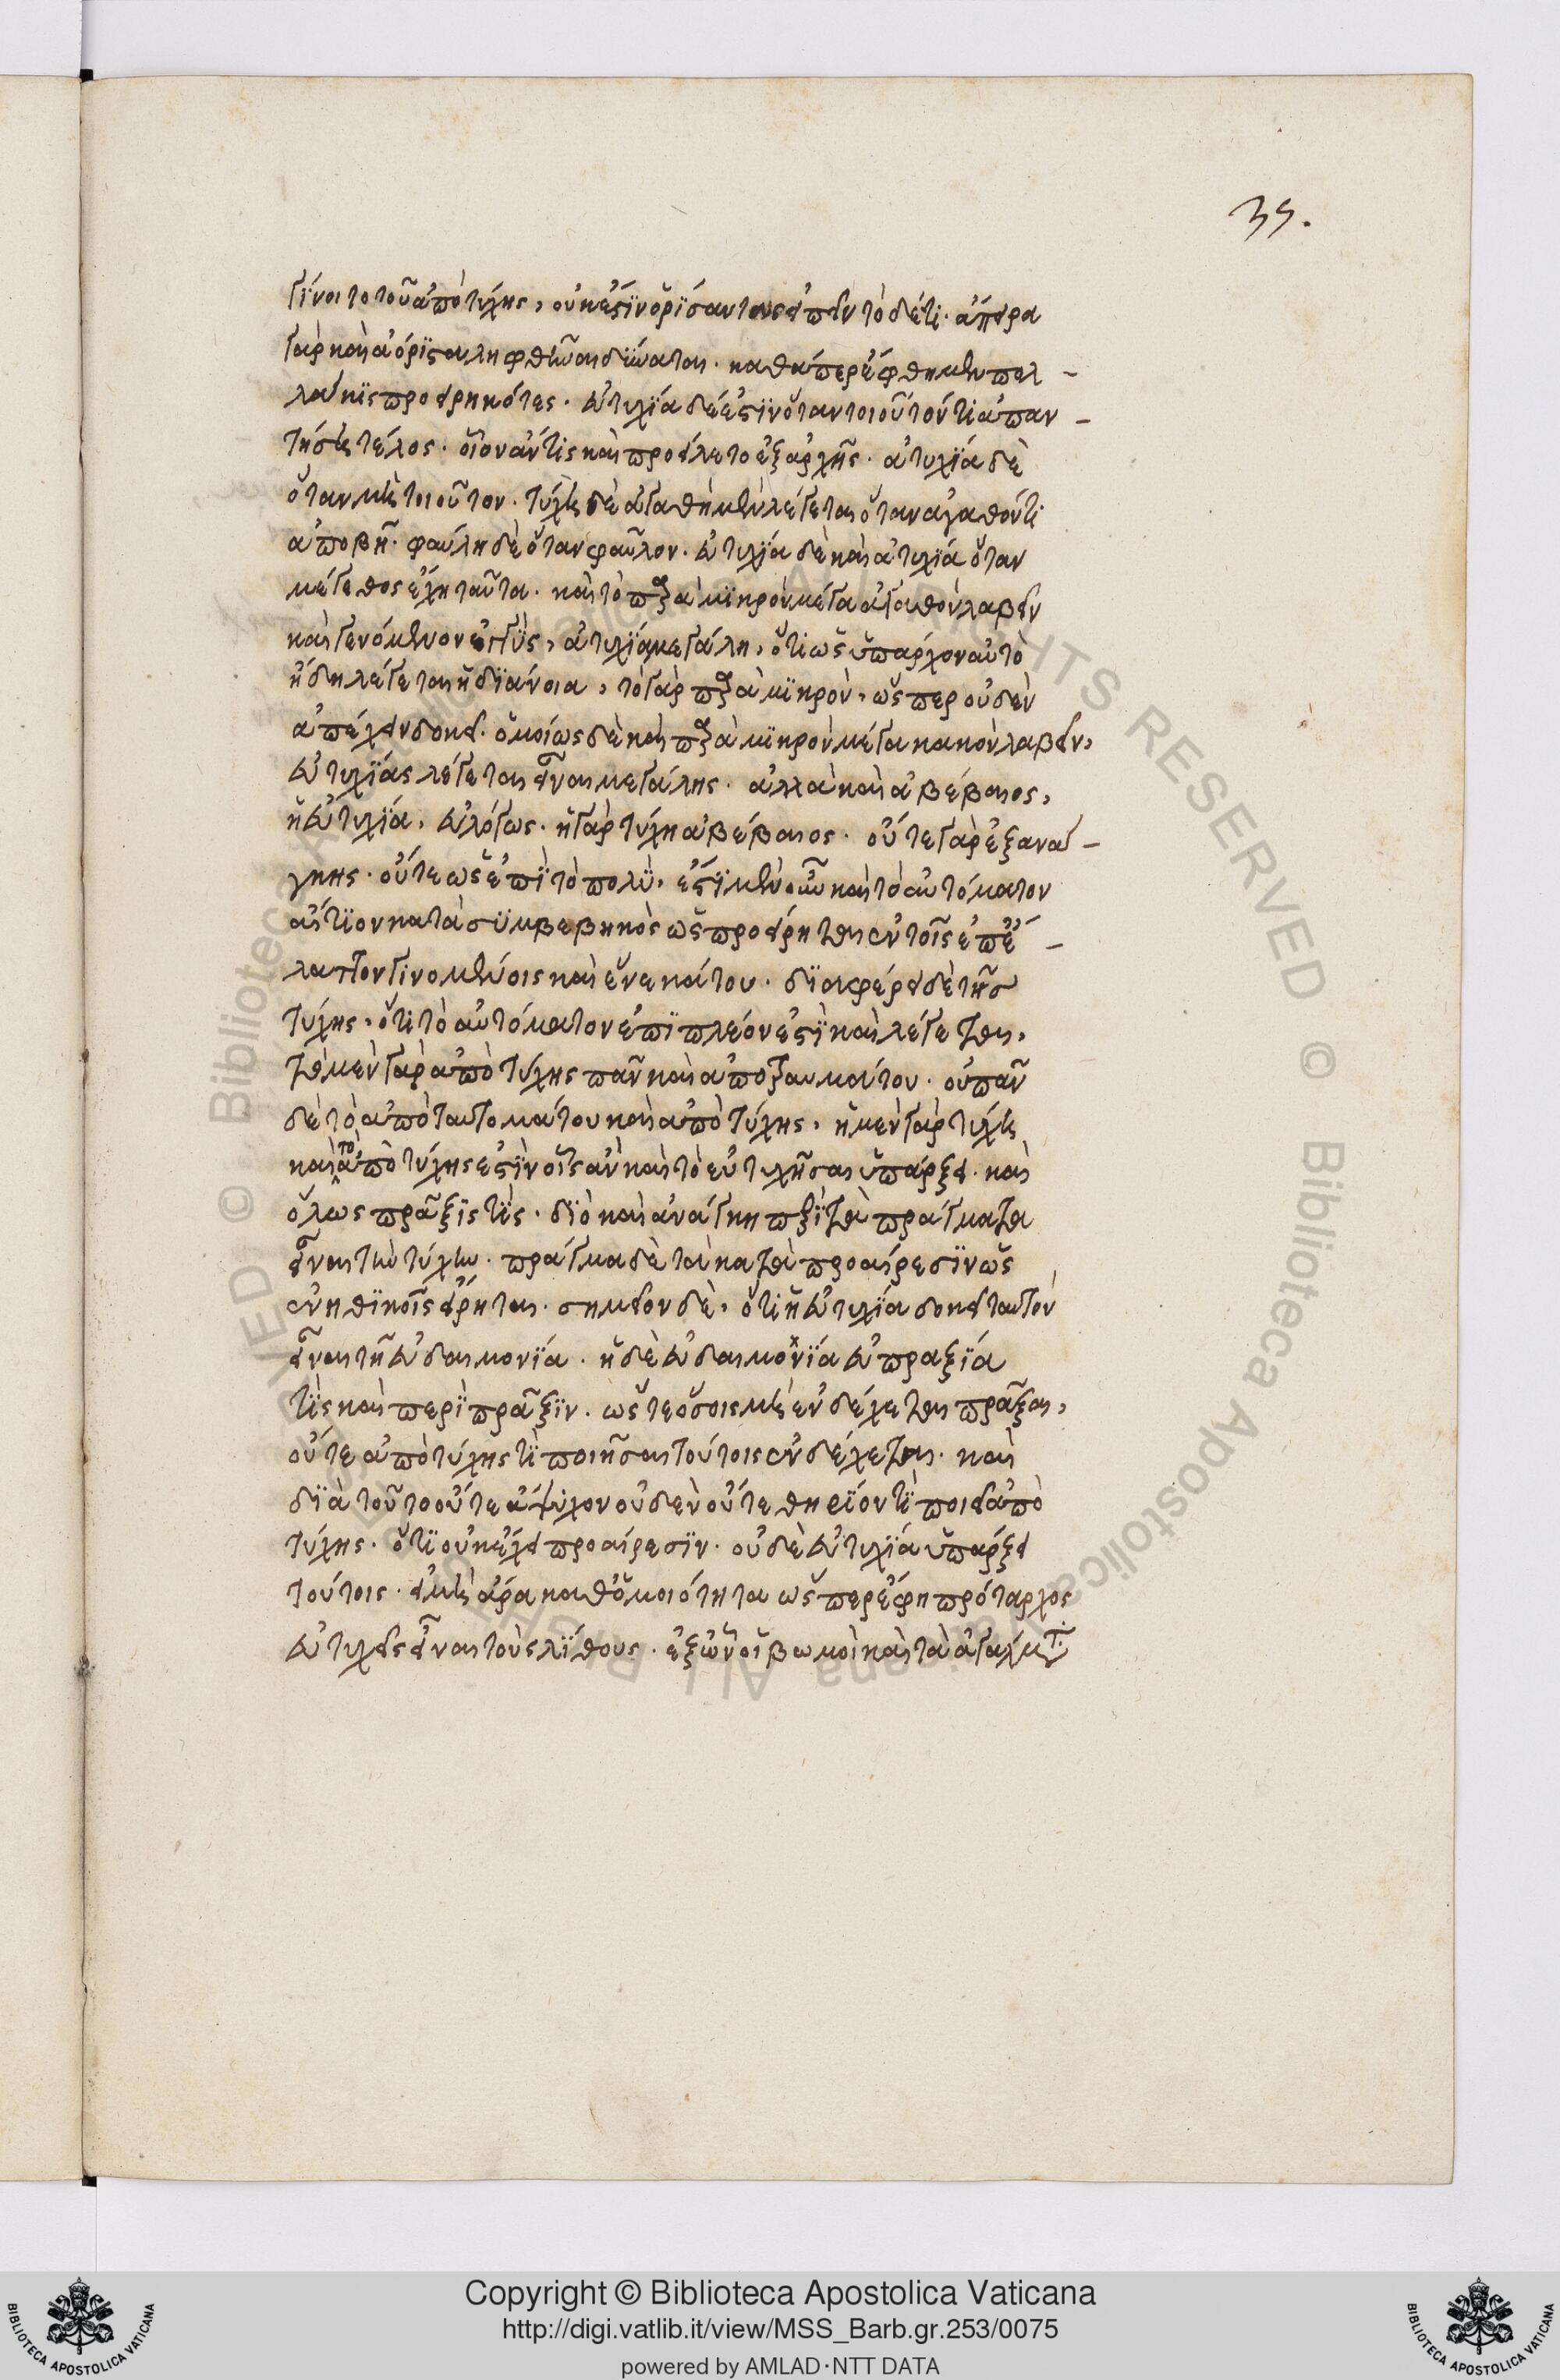 35.
γίνοιτο τοῦ ἀπὸ τύχης, οὐκ ἔστιν ὁρίσαντας εἰπεῖν τὸ δέ τι. ἄπειρα
γὰρ καὶ ἀόριστα ληφθῆναι δύναται. καθάπερ ἔφθημεν πολ-
λάκις προειρηκότες. εὐτυχία δέ ἐστιν ὅταν τοιοῦτόν τι ἀπαν-
τήσῃ τέλος. οἷον ἄν τις καὶ προείλετο ἐξ ἀρχῆς. ἀτυχία δὲ
ὅταν μὴ τοιοῦτον. τύχη δὲ ἀγαθὴ μὲν λέγεται ὅταν ἀγαθόν τι
ἀποβῇ. φαύλη δὲ ὅταν φαῦλον. εὐτυχία δὲ καὶ ἀτυχία ὅταν
μέγεθος ἔχῃ ταῦτα. καὶ τὸ παρὰ μικρὸν μέγα ἀγαθὸν λαβεῖν
καὶ γενόμενον ἐγγὺς, ἀτυχία μεγάλη, ὅτι ὡς ὑπάρχον αὐτὸ
ἤδη λέγεται ἡ διάνοια, τὸ γὰρ παρὰ μικρὸν, ὥσπερ οὐδὲν
ἀπέχειν δοκεῖ. ὁμοίως δὲ καὶ παρὰ μικρὸν μέγα κακὸν λαβεῖν,
εὐτυχίας λέγεται εἶναι μεγάλης. ἀλλὰ καὶ ἀβέβαιος,
ἡ εὐτυχία, εὐλόγως. ἡ γὰρ τύχη ἀβέβαιος. οὔτε γὰρ ἐξ ἀνάγ-
κης. οὔτε ὡς ἐπὶ τὸ πολὺ, ἔστι μὲν οὖν καὶ τὸ αὐτόματον
αἴτιον κατὰ συμβεβηκὸς ὡς προείρηται ἐν τοῖς ἐπ' ἔ-
λαττον γινομένοις καὶ ἕνεκά του. διαφέρει δὲ τῆς
τύχης, ὅτι τὸ αὐτόματον ἐπὶ πλέον ἐστὶ καὶ λέγεται,
τὸ μὲν γὰρ ἀπὸ τύχης πᾶν καὶ ἀπὸ ταυμάτου. οὐ πᾶν
δὲ τὸ ἀπὸ ταυτομάτου καὶ ἀπὸ τύχης, ἡ μὲν γὰρ τύχη
καὶ τὸ ἀπὸ τύχης ἐστὶν οἷς ἂν καὶ τὸ εὐτυχῆσαι ὑπάρξει. καὶ
ὅλως πρᾶξις τίς. διὸ καὶ ἀνάγκη περὶ τὰ πράγματα
εἶναι τὴν τύχην. πράγμα δὲ τὰ κατὰ προαίρεσιν ὡς
ἐν ἠθικοῖς εἴρηται. σημεῖον δὲ, ὅτι ἡ εὐτυχία δοκεῖ ταυτὸν
εἶναι τῇ εὐδαιμονίᾳ. ἡ δὲ εὐδαιμονία εὐπραξία
τὶς καὶ περὶ πρᾶξιν. ὥστε ὅσοις μὴ ἐνδέχεται πρᾶξαι,
οὔτε ἀπὸ τύχης τὶ ποιῆσαι τούτοις ἐνδέχεται. καὶ
διὰ τοῦτο οὔτε ἄψυχον οὐδὲν οὔτε θηρίον τὶ ποιεῖ ἀπὸ
τύχης. ὅτι οὐκ ἔχει προαίρεσιν. οὐδὲ εὐτυχία ὑπάρξει
τούτοις. εἰ μὴ ἄρα καθ' ὁμοιότητα ὥσπερ ἔφη πρόταρχος
εὐτυχεῖς εἶναι τοὺς λίθους. ἐξ ὧν οἱ βωμοὶ καὶ τὰ ἀγάλματα
Copyright © Biblioteca Apostolica Vaticana
http://digi.vatlib.it/view/MSS_Barb.gr.253/0075
powered by AMLAD·NTT DATA